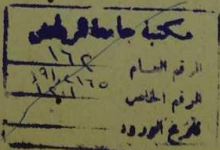 مكتبة جامعة الرياض
الرقم العام ١٦٢
الرقم الخاص
تاريخ الورود